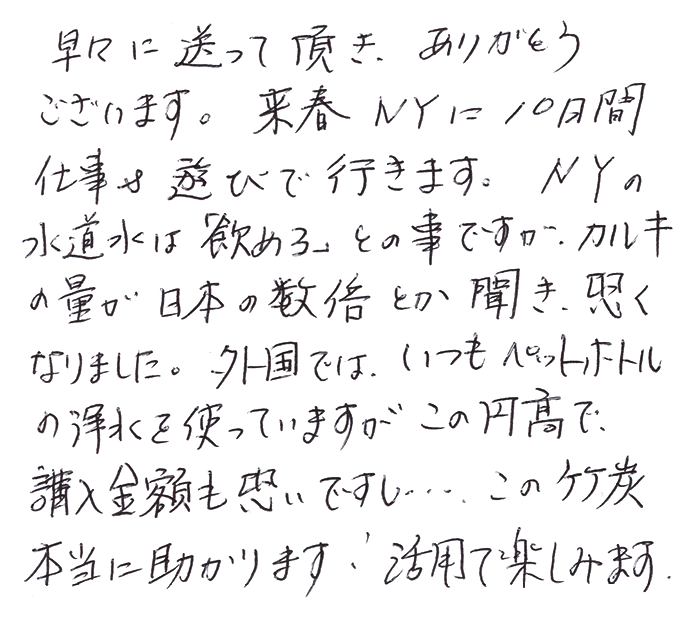 早々に送って頂き、ありがとう
ございます。来春NYに10日間
仕事や遊びで行きます。NYの
水道水は「飲める」との事ですが、カルキ
の量が日本の数倍とか聞き、恐く
なりました。外国では、いつもペットボトル
の浄水を使っていますがこの円高で、
購入金額も恐いですし‥‥、この竹炭
本当に助かります！活用て楽しみます.